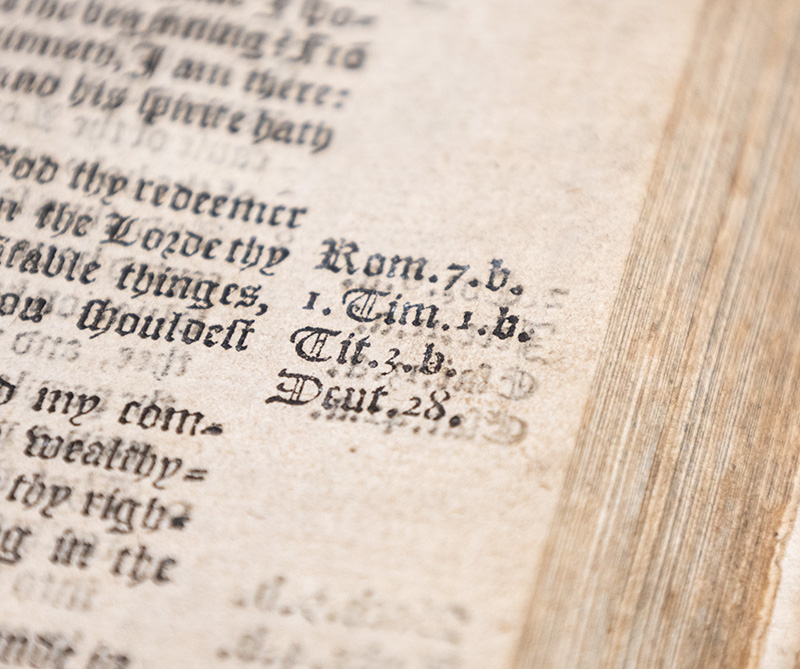 the beginning: Frō
sinneth, I am there:
and his spirite hath
God thy redeemer
the Lorde thy
itable thinges,
ou shouldest
my com-
wealthy=
thy righ-
in the
Rom.7.b.
1.Tim.1.b.
Tit.3.b.
Deut.28.